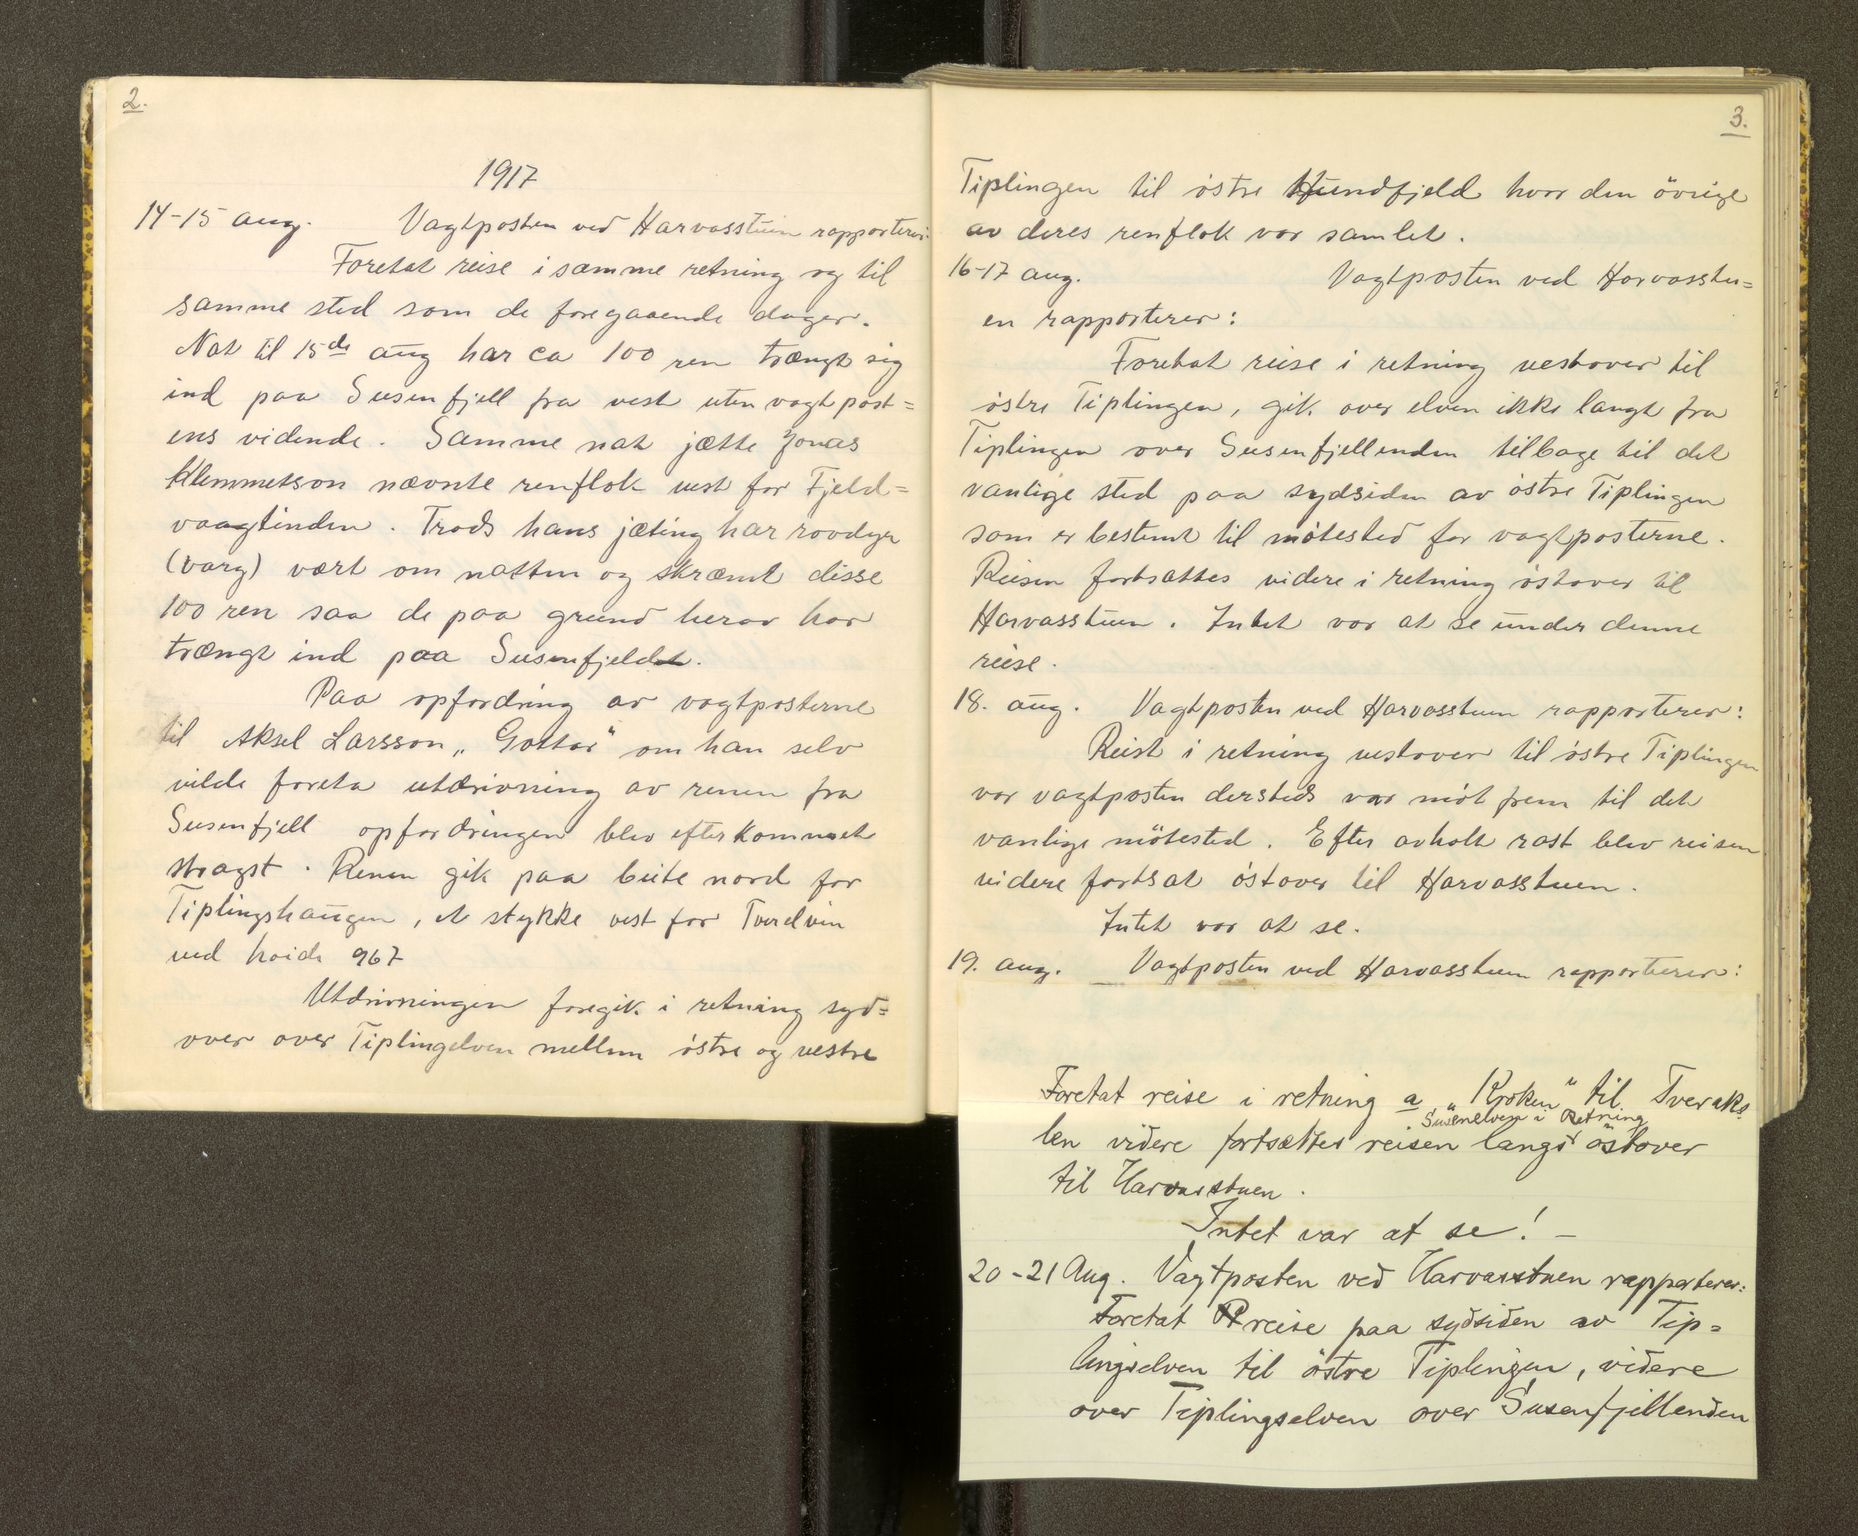 2.
1917
14-15 aug. Vagtposten ved Harvasstuen rapporterer:
Foretat reise i samme retning og til
samme sted som de foregaaende dager.
Nat til 15de aug har ca 100 ren trængt sig
ind paa Susenfjell fra vest uten vagtpost=
ens vidende. Samme nat jætte Jonas
Klemmetson nævnte renflok vest for Fjeld=
vaagtinden. Trods hans jæting har rovdyr
(varg) vært om natten og skræmt disse
100 ren saa de paa grund herav har
trængt ind paa Susenfjeldet.
Paa opfordring av vagtposterne
til Aksel Larsson „Gottar" om han selv
vilde foreta utdrivning av renen fra
Susenfjell opfordringen blev efterkommet
stragst. Renen gik paa beite nord for
Tiplingshaugen, et stykke vest for Tverelven
ved høide 967
Utdrivningen foregik i retning syd=
over over Tiplingelven mellem østre og vestre
3.
Tiplingen til østre Hundfjeld hvor den övrige
av deres renflok var samlet.
16-17 aug. Vagtposten ved Harvasstu=
en rapporterer:
Foretat reise i retning vestover til
østre Tiplingen, gik over elven ikke langt fra
Tiplingen over Susenfjellenden tilbage til det
vanlige sted paa sydsiden av østre Tiplingen
som er bestemt til møtested for vagtposterne.
Reisen fortsattes videre i retning østover til
Harvasstuen. Intet var at se under denne
reise.
18. aug. Vagtposten ved Harvasstuen rapporterer:
Reist i retning vestover til østre Tiplingen
var vagtposten dersteds var møt frem til det
vanlige mötested. Efter avholt rast blev reisen
videre fortsat østover til Harvasstuen.
Intet var at se.
19. aug. Vagtposten ved Harvasstuen rapporterer:
Foretat reise i retning a „Kroken" til Tveraks
Susenelven i Retning
len videre fortsættes reisen langs östover
til Harvasstuen.
Intet var at se! —
20-21 Aug. Vagtposten ved Harvasstuen rapporterer:
Foretat reise paa sydsiden av Tip=
lingselven til östre Tiplingen, videre
over Tiplingselven over Susenfjellenden